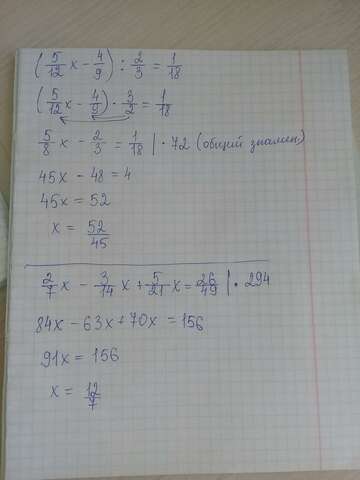 (5/12 x - 4/9) : 2/3 = 1/18
(5/12 x - 4/9) · 3/2 = 1/18
5/8 x - 2/3 = 1/18 | · 72 (общий знамен)
45x - 48 = 4
45x = 52
x = 52/45
2/7 x - 3/14 x + 5/21 x = 26/49 | · 294
84x - 63x + 70x = 156
91x = 156
x = 12/7